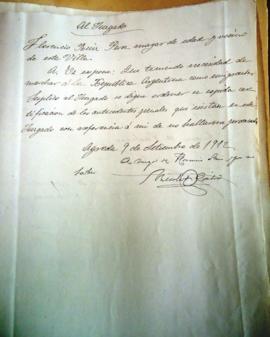 Al Juzgado
Florencio Ruiz mayor de edad y vecino
de esta Villa
A. Vd expone: Que teniendo necesidad de
marchar á la República Argentina como emigrante
Suplico al Juzgado se digne ordenar se expida cer
tificacion de los antecedentes penales que existan en este
Juzgado con referencia á mi de no hallarme procesado
Agreda 9 de Setiembre de 1912
A ruego de Florencio